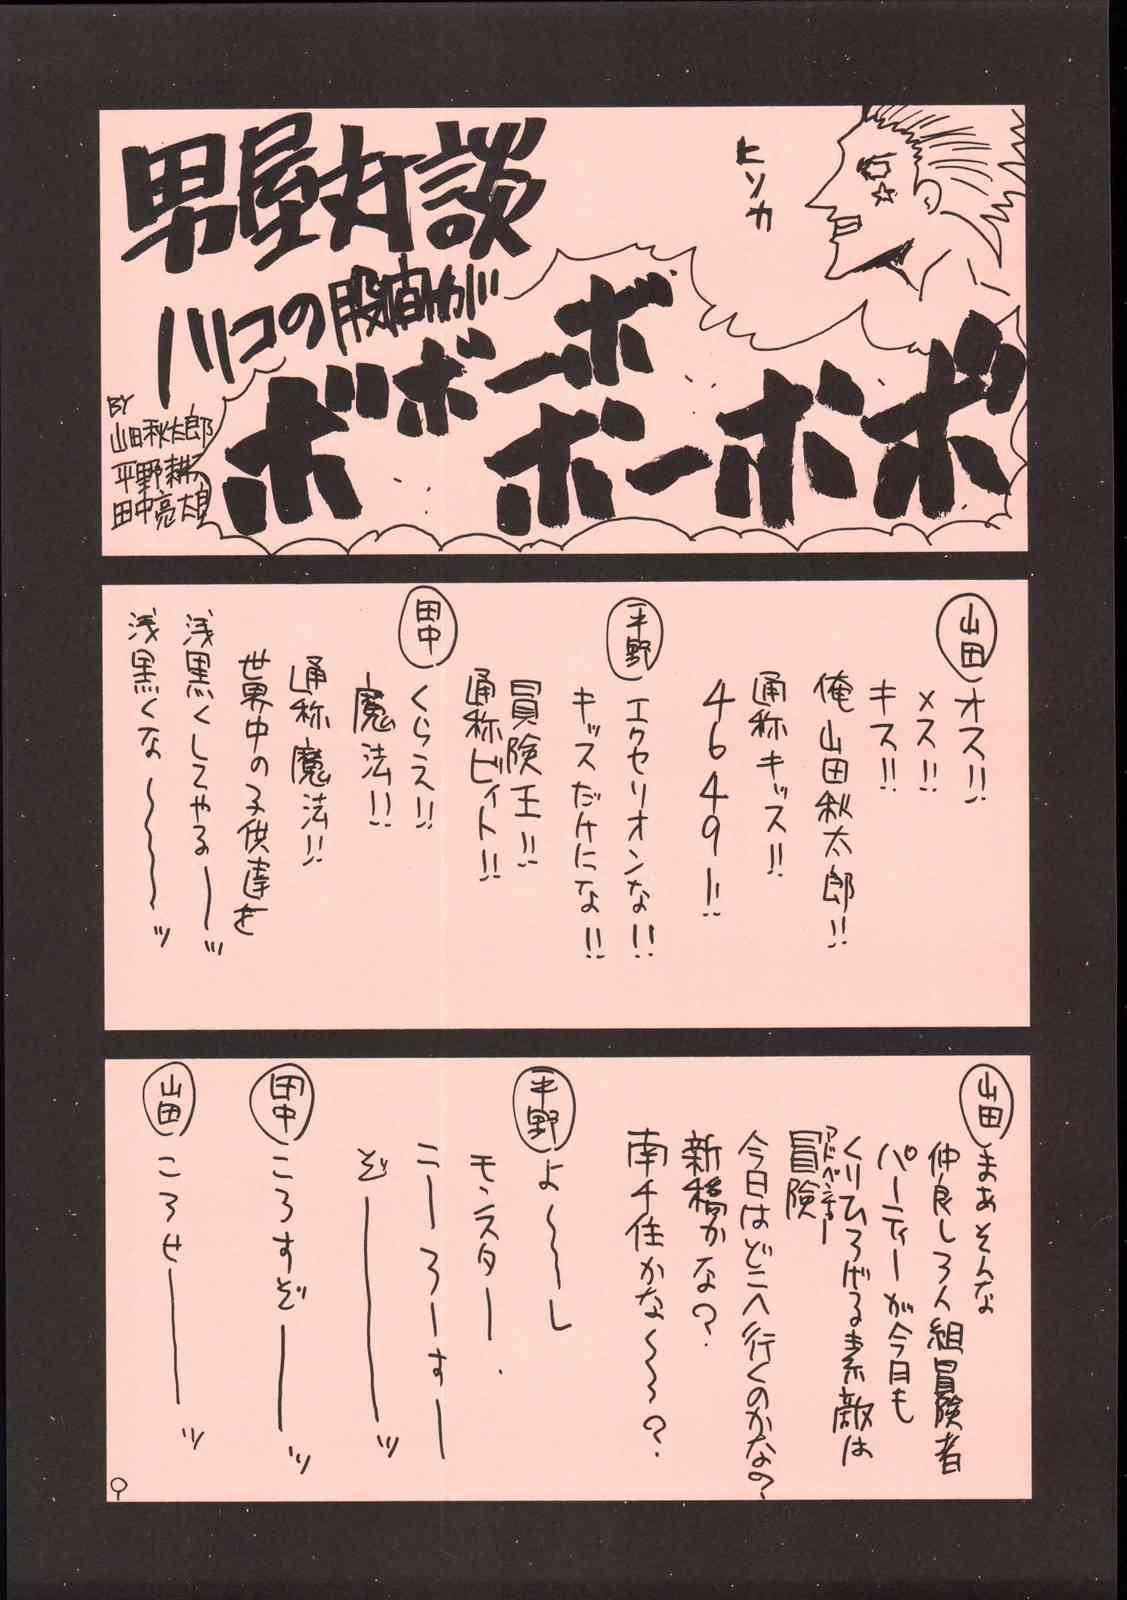 男屋対談
ハリコの股間が
ボボボーボ
ボーボボ
ヒソカ
BY
山田秋太郎
平野耕太
田中亮太良
山田
オス!!
メス!!
キス!!
俺山田秋太郎!!
通称キッス!!
4649!!
平野
エクセリオンな!!
キッスだけにな!!
冒険王!!
通称ビィト!!
田中
くらえ!!
魔法!!
通称魔法!!
世界中の子供達を
浅黒くしてやるーーッ
浅黒くな〜〜〜〜ッ
山田
まぁそんな
仲良し3人組冒険者
パーティーが今日も
くりひろげる素敵な
冒険
アドベンチャー
今日はどこへ行くのかな?
新稿かな?
南千住かな〜〜?
平野
よ〜〜し
モンスター
こーろーすー
ぞーーーッ
田中
ころすぞーーーッ
山田
ころせーーーッ